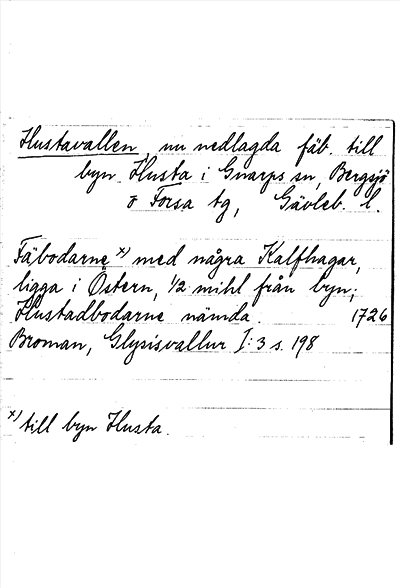 Hustavallen, nu nedlagda fäb. till
byn Husta i Gnarps sn, Bergsjö
o Forsa tg, Gävleb. l.
Fäbodarne x) med några Kalfhagar,
ligga i Östern, 1/2 mihl från byn;
Hustadbodarne nämda. 1726
Broman, Glysisvallur I:3 s. 198
x) till byn Husta.